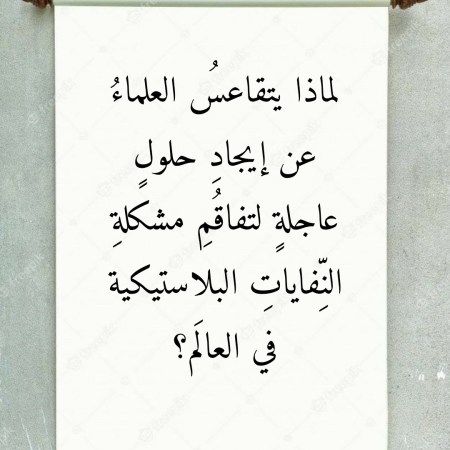 لماذا يتقاعسُ العلماءُ
عن إيجادِ حلولٍ
عاجلةٍ لتفاقُمِ مشكلةِ
النِّفاياتِ البلاستيكية
في العالَم؟